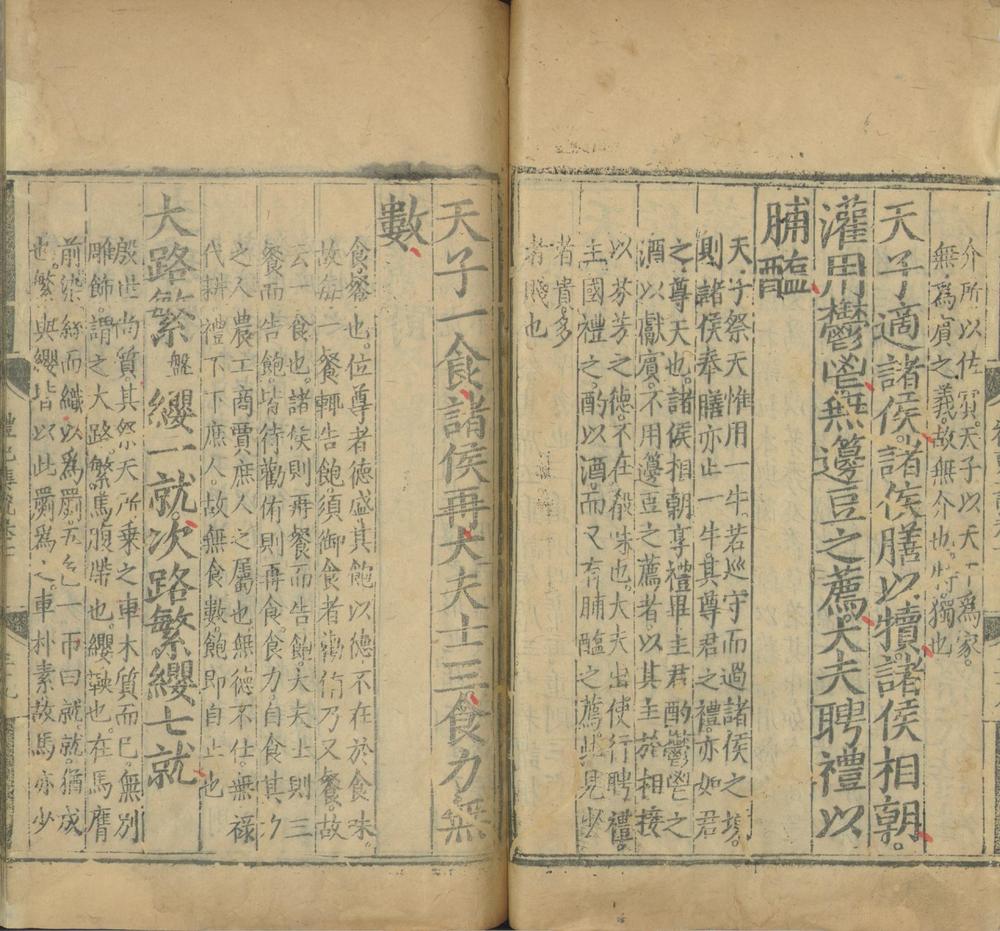 介所以佐賓。天子以天下爲家。
無爲賓之義。故無介也。特。獨也
天子適諸侯。諸侯膳以犢。諸侯相朝。
灌用鬱鬯。無籩豆之薦。大夫聘禮以
脯醢
天子祭天。惟用一牛。若巡守而過諸侯之境。
則諸侯奉膳亦止一牛。其尊君之禮。亦如君
之尊天也。諸侯相朝。享禮畢。主君酌鬱鬯之
酒以獻賓。不用籩豆之薦者。以其主於相接
以芬芳之德。不在殽味也。大夫出使行聘禮。
主國禮之。酌以酒。而又有脯醢之薦。此見少
者貴。多
者賤也
天子一食。諸侯再。大夫士三。食力無
數
食。餐也。位尊者德盛。其飽以德。不在於食味。
故每一餐輒告飽。須御食者勸侑。乃又餐。故
云一食也。諸侯則再餐而告飽。大夫士則三
餐而告飽。皆待勸侑則再食。食力。自食其力
之人。農工商賈庶人之屬也。無德不仕。無祿
代耕。禮不下庶人。故無食數。飽即自止也
大路繁盤纓一就。次路繁纓七就
殷世尚質。其祭天所乘之車。木質而已。無別
雕飾。謂之大路。繁。馬腹帶也。纓。鞅也。在馬膺
前。染絲而織以爲罽。五色一帀曰就。就。猶成
也。繁與纓。皆以此罽爲之。車朴素。故馬亦少